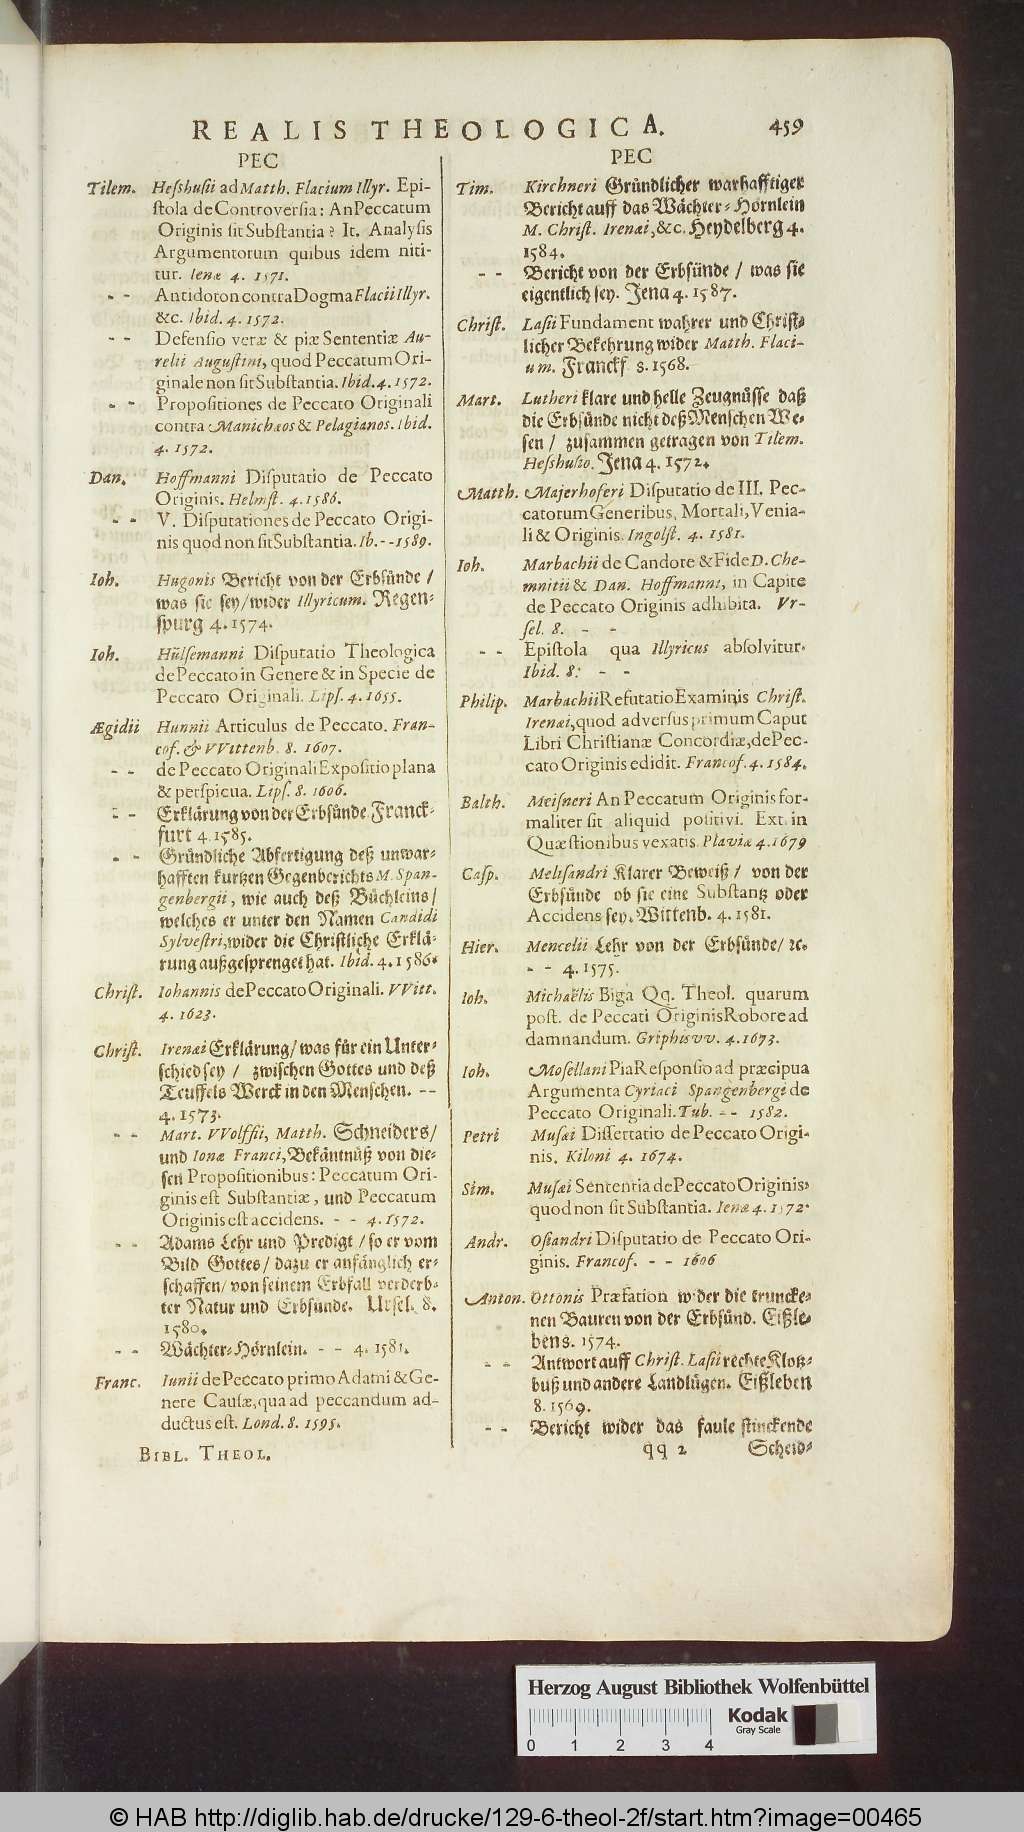 REALIS THEOLOGICA. 459
PEC
Tilem. Heſshuſii ad Matth. Flacium Illyr. Epi-
ſtola de Controverſia: An Peccatum
Originis ſit Subſtantia? It. Analyſis
Argumentorum quibus idem niti-
tur. Ienæ 4. 1571.
- - Antidoton contra Dogma Flacii Illyr.
&c. Ibid. 4. 1572.
- - Defenſio veræ & piæ Sententiæ Au-
relii Auguſtini, quod Peccatum Ori-
ginale non ſit Subſtantia. Ibid. 4. 1572.
- - Propoſitiones de Peccato Originali
contra Manichæos & Pelagianos. Ibid.
4. 1572.
Dan. Hoffmanni Diſputatio de Peccato
Originis. Helmſt. 4. 1586.
- - V. Diſputationes de Peccato Origi-
nis quod non ſit Subſtantia. Ib. - - 1589.
Ioh. Hugonis Bericht von der Erbſünde /
was ſie ſey / wider Illyricum. Regen-
ſpurg 4. 1574.
Ioh. Hülſemanni Diſputatio Theologica
de Peccato in Genere & in Specie de
Peccato Originali. Lipſ. 4. 1655.
Ægidii Hunnii Articulus de Peccato. Fran-
cof. & VVittenb. 8. 1607.
- - de Peccato Originali Expoſitio plana
& perſpicua. Lipſ. 8. 1606.
- - Erklärung von der Erbſünde Franck-
furt 4. 1585.
- - Gründliche Abfertigung deß unwar-
hafften kurtzen Gegenberichts M. Span-
genbergii, wie auch deß Büchleins /
welches er unter den Namen Candidi
Sylveſtri, wider die Chriſtliche Erklä-
rung außgeſprenget hat. Ibid. 4. 1586.
Chriſt. Iohannis de Peccato Originali. VVitt.
4. 1623.
Chriſt. Irenæi Erklärung / was für ein Unter-
ſchied ſey / zwiſchen Gottes und deß
Teuffels Werck in den Menſchen. - -
4. 1573.
- - Mart. VVolffii, Matth. Schneiders /
und Ionæ Franci, Bekäntnüß von die-
ſen Propoſitionibus: Peccatum Ori-
ginis eſt Subſtantiæ, und Peccatum
Originis eſt accidens. - - 4. 1572.
- - Adams Lehr und Predigt / ſo er vom
Bild Gottes / dazu er anfänglich er-
ſchaffen / von ſeinem Erbfall verderb-
ter Natur und Erbſünde. Urſel. 8.
1580.
- - Wächter-Hörnlein. - - 4. 1581.
Franc. Iunii de Peccato primo Adami & Ge-
nere Cauſæ, qua ad peccandum ad-
ductus eſt. Lond. 8. 1595.
BIBL. THEOL.
PEC
Tim. Kirchneri Gründlicher warhafftiger
Bericht auff das Wächter-Hörnlein
M. Chriſt. Irenæi, &c. Heydelberg 4.
1584.
- - Bericht von der Erbſünde / was ſie
eigentlich ſey. Jena 4. 1587.
Chriſt. Laſii Fundament wahrer und Chriſt-
licher Bekehrung wider Matth. Flaci-
um. Franckf 8. 1568.
Mart. Lutheri klare und helle Zeugnüſſe daß
die Erbſünde nicht deß Menſchen We-
ſen / zuſammen getragen von Tilem.
Heſshuſio. Jena 4. 1572.
Matth. Majerhoferi Diſputatio de III. Pec-
catorum Generibus, Mortali, Venia-
li & Originis. Ingolſt. 4. 1581.
Ioh. Marbachii de Candore & Fide D. Che-
mnitii & Dan. Hoffmanni, in Capite
de Peccato Originis adhibita. Vr-
ſel. 8. - -
- - Epiſtola qua Illyricus abſolvitur.
Ibid. 8: - -
Philip. Marbachii Refutatio Examinis Chriſt.
Irenæi, quod adverſus primum Caput
Libri Chriſtianæ Concordiæ, de Pec-
cato Originis edidit. Francof. 4. 1584.
Balth. Meiſneri An Peccatum Originis for-
maliter ſit aliquid poſitivi. Ext. in
Quæſtionibus vexatis. Plaviæ 4. 1679
Caſp. Meliſandri Klarer Beweiß / von der
Erbſünde ob ſie eine Subſtantz oder
Accidens ſey. Wittenb. 4. 1581.
Hier. Mencelii Lehr von der Erbſünde / ꝛc.
- - 4. 1575.
Ioh. Michaëlis Biga Qq. Theol. quarum
poſt. de Peccati Originis Robore ad
damnandum. Griphisvv. 4. 1673.
Ioh. Moſellani Pia Reſponſio ad præcipua
Argumenta Cyriaci Spangenbergi de
Peccato Originali. Tub. - - 1582.
Petri Muſæi Diſſertatio de Peccato Origi-
nis. Kiloni 4. 1674.
Sim. Muſæi Sententia de Peccato Originis,
quod non ſit Subſtantia. Ienæ 4. 1572.
Andr. Oſiandri Diſputatio de Peccato Ori-
ginis. Francof. - - 1606
Anton. Ottonis Præfation wider die truncke-
nen Bauren von der Erbſünd. Eißle-
bens. 1574.
- - Antwort auff Chriſt. Laſii rechte Klotz-
buß und andere Landlügen. Eißleben
8. 1569.
- - Bericht wider das faule ſtinckende
qq 2 Scheid-
Herzog August Bibliothek Wolfenbüttel
Kodak
Gray Scale
0 1 2 3 4
© HAB http://diglib.hab.de/drucke/129-6-theol-2f/start.htm?image=00465